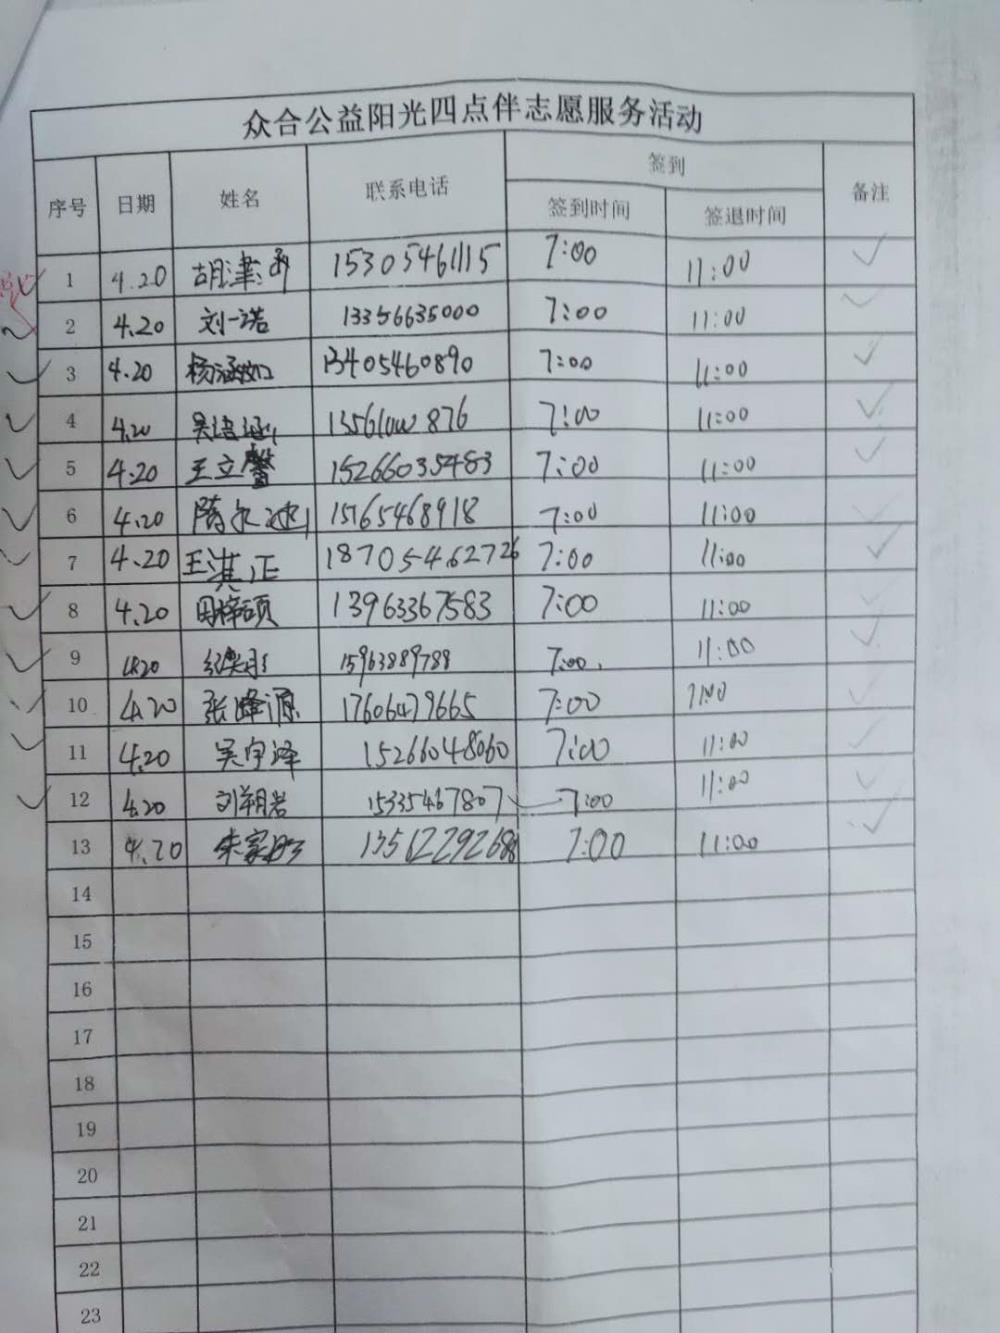 众合公益阳光四点伴志愿服务活动
序号 日期 姓名 联系电话 签到 备注
签到时间 签退时间
1 4.20 胡津 15305461115 7:00 11:00 ✓
2 4.20 刘一诺 13356635000 7:00 11:00 ✓
3 4.20 杨涵 13405460890 7:00 11:00 ✓
4 4.20 吴语涵 7:00 11:00 ✓
5 4.20 王立馨 15266035483 7:00 11:00 ✓
6 4.20 隋 15765468918 7:00 11:00 ✓
7 4.20 王淇正 18705462726 7:00 11:00 ✓
8 4.20 周梓硕 13963367583 7:00 11:00 ✓
9 4.20 纪奕彤 15963889788 7:00. 11:00 ✓
10 4.20 张峰源 17606479665 7:00 11:00 ✓
11 4.20 吴宇泽 15266048060 7:00 11:00 ✓
12 4.20 刘翔岩 15335467807 7:00 11:00 ✓
13 4.20 朱家 7:00 11:00 ✓
14
15
16
17
18
19
20
21
22
23